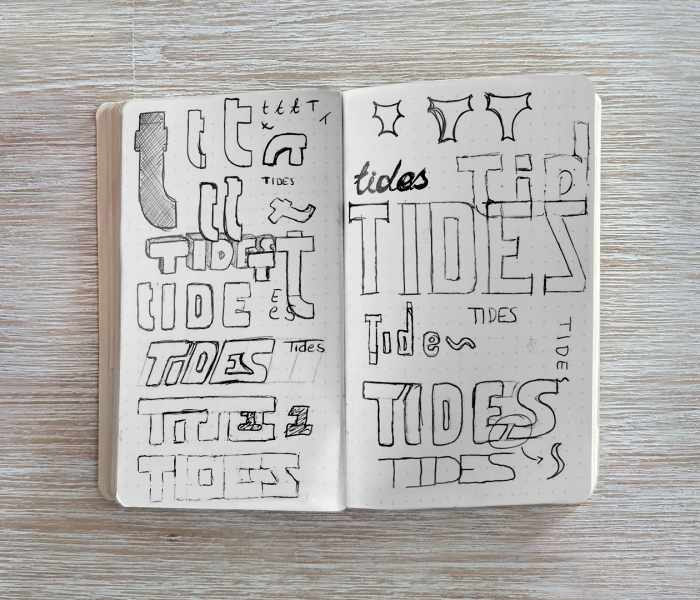 t
t
t
t t t T T
t t
TIDES
TIDES
T
tIDE
E
es
TIDES
Tides
TIDES
1
TIDES
tides
Tip
TIDES
Tide~
TIDES
TIDES
TIDES
TIDES
S